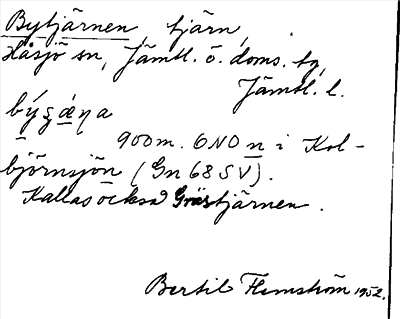 Bytjärnen, tjärn,
Håsjö sn, Jämtl. ö. doms. tg,
Jämtl. l.
900 m. ONO n i Kol-
björnsjön (Gn 68 SV).
Kallas också Grästjärnen.
Bertil Flemström 1952.